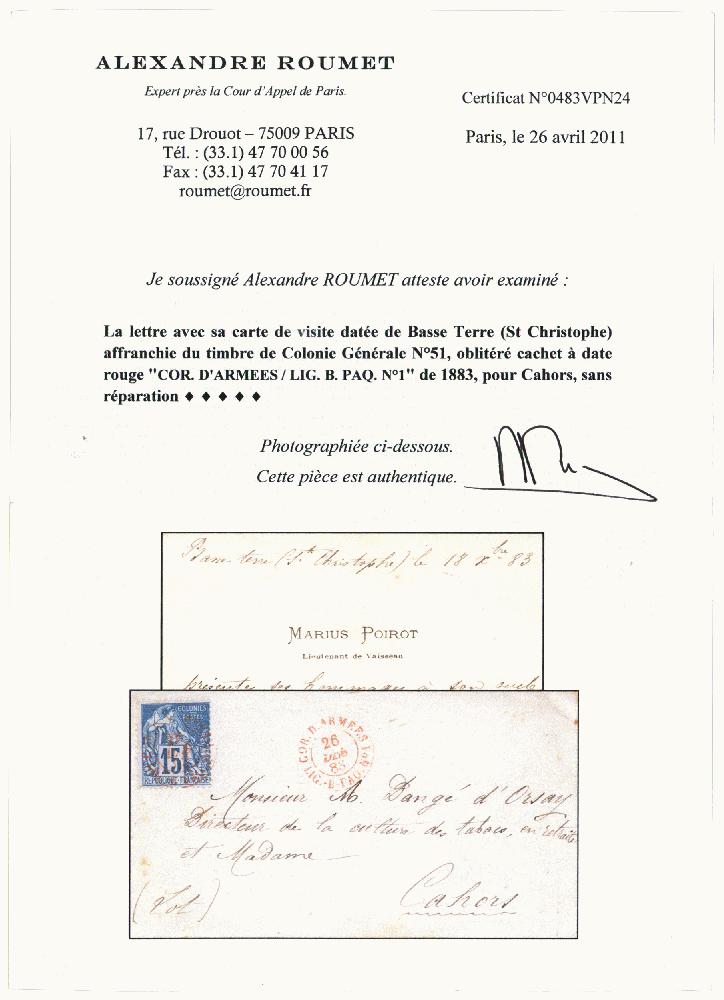 ALEXANDRE ROUMET
Expert près la Cour d'Appel de Paris.
17, rue Drouot – 75009 PARIS
Tél. : (33.1) 47 70 00 56
Fax : (33.1) 47 70 41 17
roumet@roumet.fr
Certificat N°0483VPN24
Paris, le 26 avril 2011
Je soussigné Alexandre ROUMET atteste avoir examiné :
La lettre avec sa carte de visite datée de Basse Terre (St Christophe)
affranchie du timbre de Colonie Générale N°51, oblitéré cachet à date
rouge "COR. D'ARMEES / LIG. B. PAQ. N°1" de 1883, pour Cahors, sans
réparation ♦ ♦ ♦ ♦ ♦
Photographiée ci-dessous.
Cette pièce est authentique.
Basse terre (St Christophe) le 18 Xbre 83
MARIUS POIROT
Lieutenant de Vaisseau
présente ses hommages à son oncle
COLONIES
POSTES
15
REPUBLIQUE FRANÇAISE
COR. D'ARMEES
26
83
LIG. B. PAQ.
Monsieur M. Dangé d'Orsay
Directeur de la culture des tabacs, en retraite
et Madame
Cahors
(Lot)